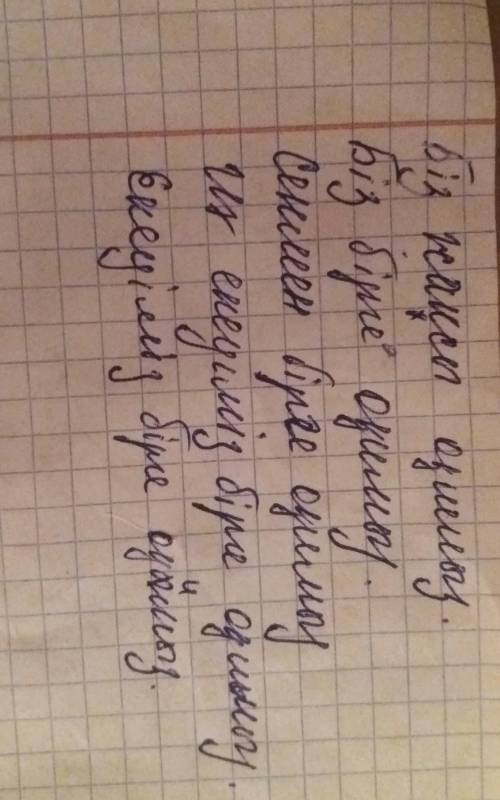 Біз жақсы оқимыз.
Біз бірге оқимыз.
Сенмен бірге оқимыз
Их екеуіміз бірге оқимыз.
Екеуіміз бірге оқимыз.